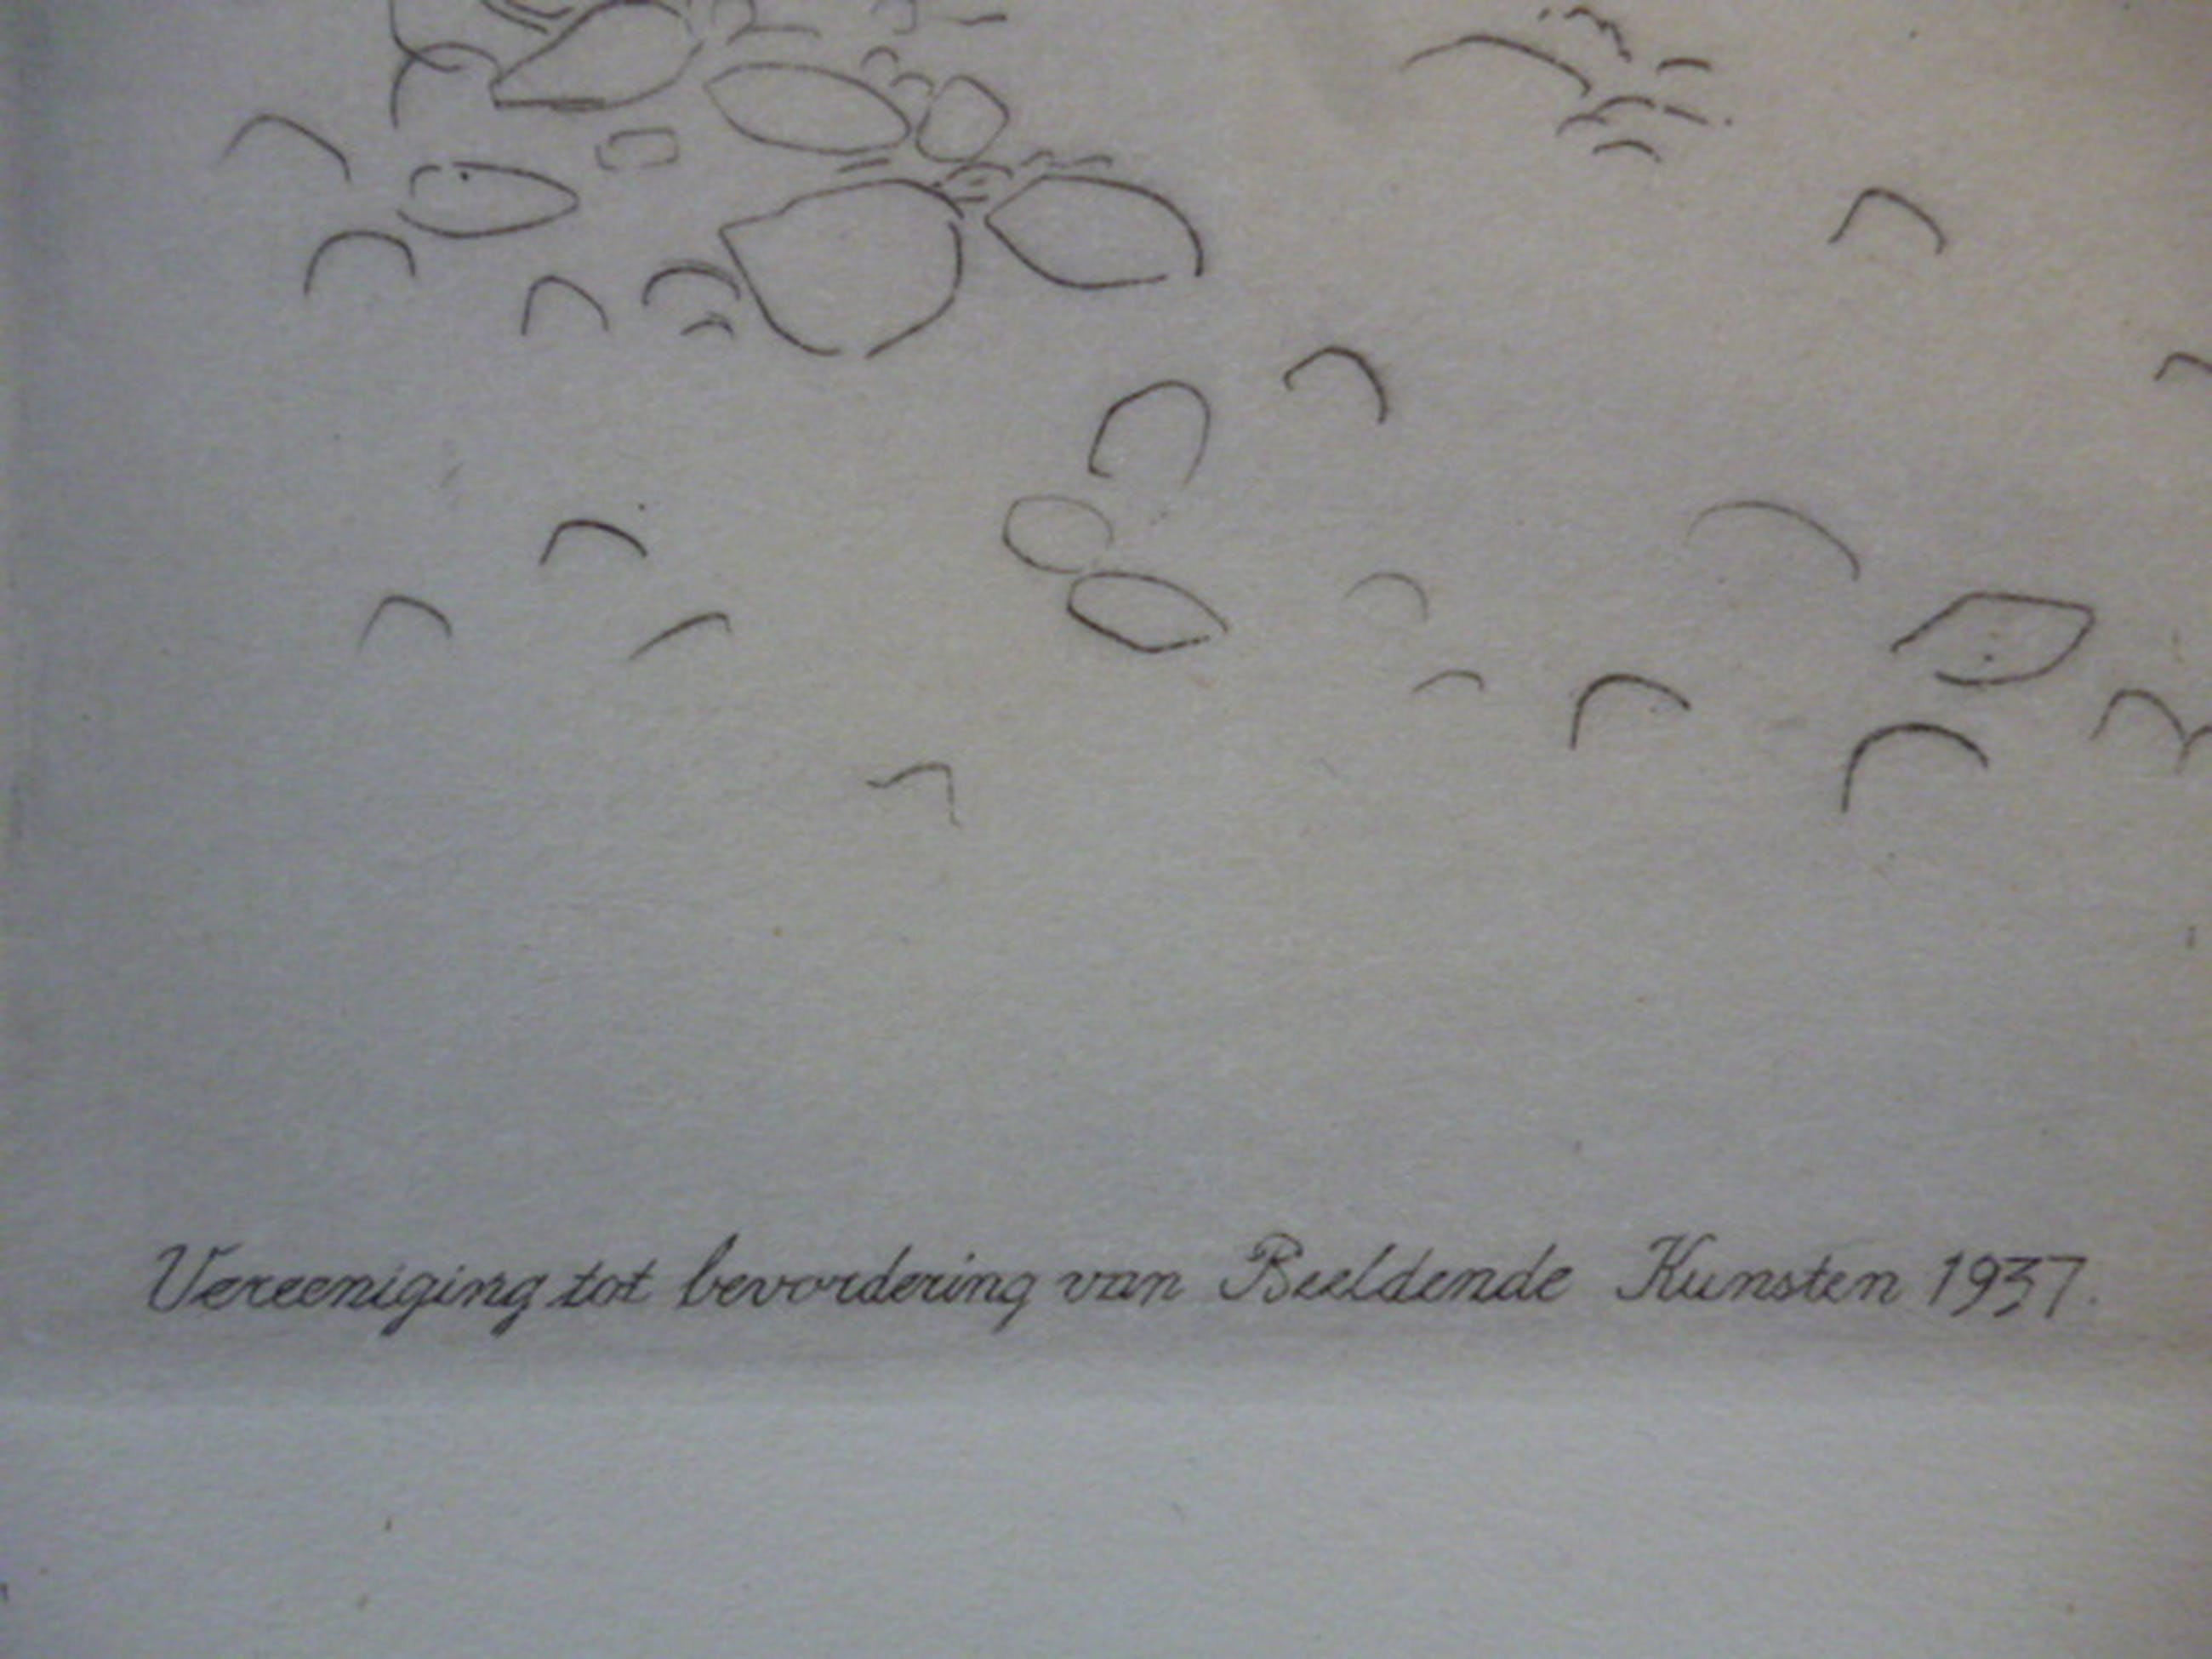 Vereeniging tot bevordering van Beeldende Kunsten 1937.